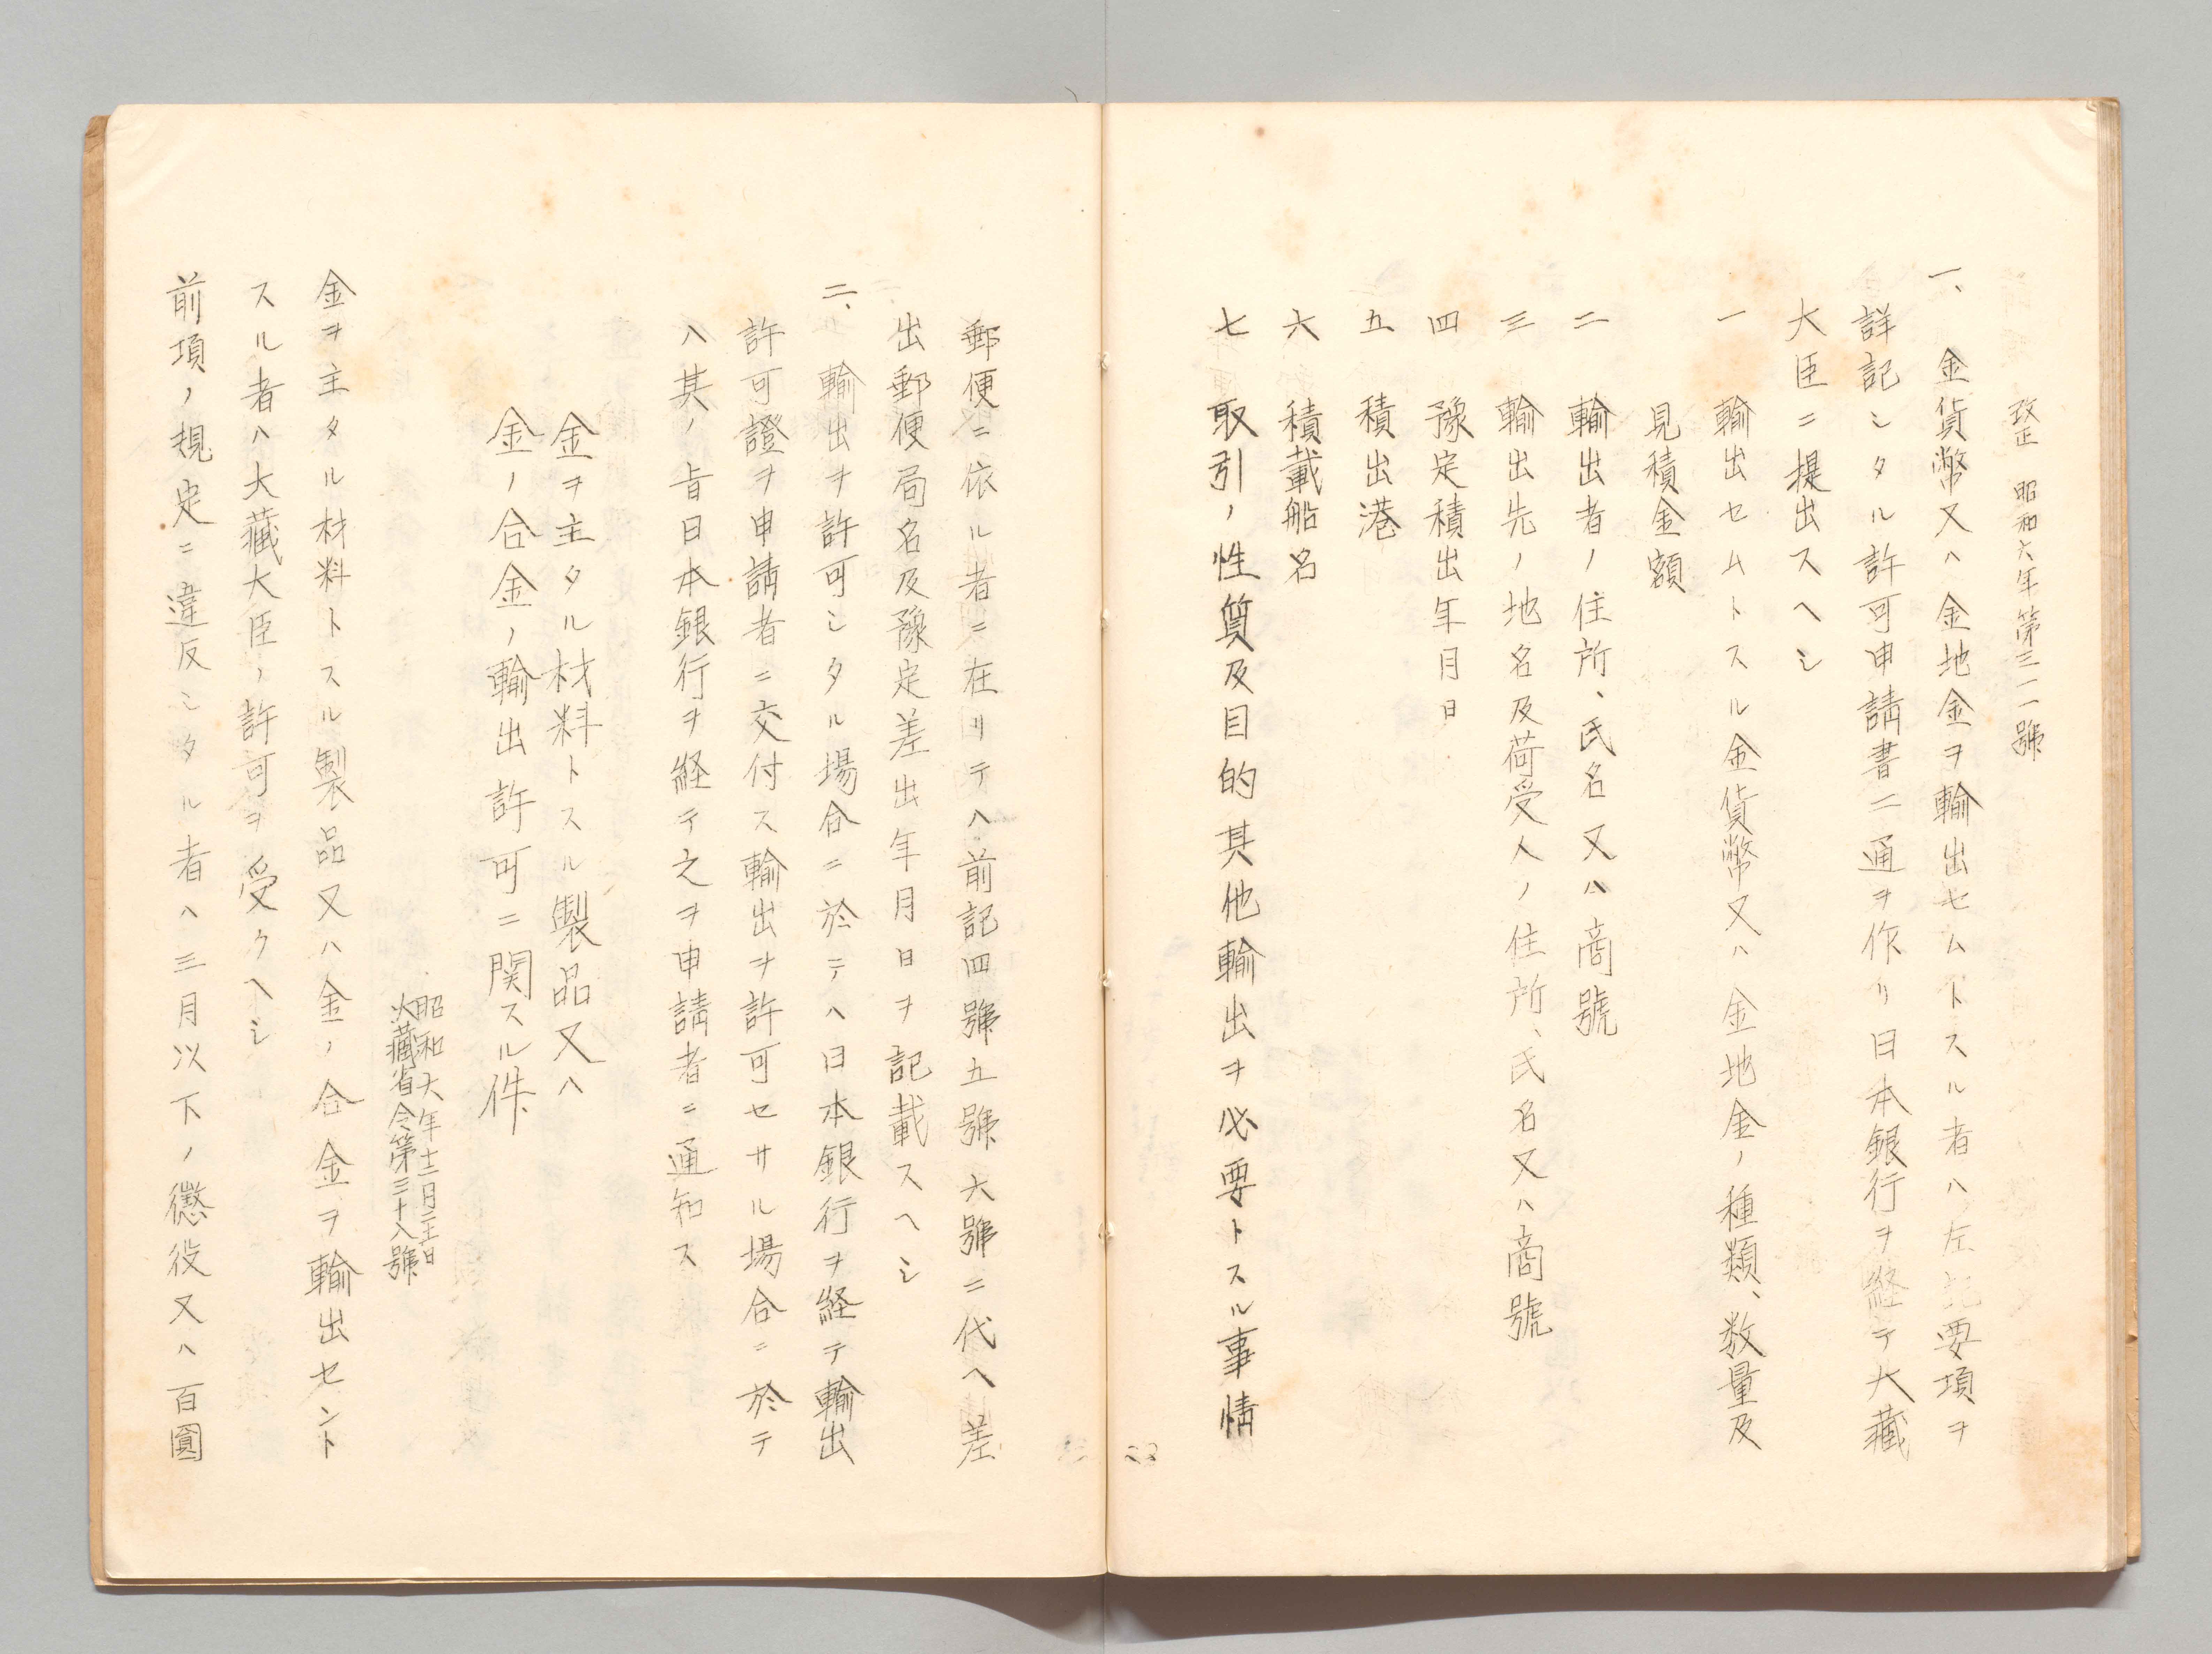 改正 昭和六年第三一一號
一、金貨幣又ハ金地金ヲ輸出セムトスル者ハ左記要項ヲ
詳記シタル許可申請書二通ヲ作リ日本銀行ヲ経テ大藏
大臣ニ提出スヘシ
一 輸出セムトスル金貨幣又ハ金地金ノ種類、数量及
見積金額
二 輸出者ノ住所、氏名又ハ商號
三 輸出先ノ地名及荷受人ノ住所、氏名又ハ商號
四 豫定積出年月日
五 積出港
六 積載船名
七 取引ノ性質及目的其他輸出ヲ必要トスル事情
22
郵便ニ依ル者ニ在リテハ前記四號五號六號ニ代ヘ差
出郵便局名及豫定差出年月日ヲ記載スヘシ
二、輸出ヲ許可シタル場合ニ於テハ日本銀行ヲ経テ輸出
許可證ヲ申請者ニ交付ス輸出ヲ許可セサル場合ニ於テ
ハ其ノ旨日本銀行ヲ経テ之ヲ申請者ニ通知ス
金ヲ主タル材料トスル製品又ハ
金ノ合金ノ輸出許可ニ関スル件
昭和六年十二月十三日
大藏省令第三十八號
金ヲ主タル材料トスル製品又ハ金ノ合金ヲ輸出セント
スル者ハ大藏大臣ノ許可ヲ受クヘシ
前項ノ規定ニ違反シタル者ハ三月以下ノ懲役又ハ百圓